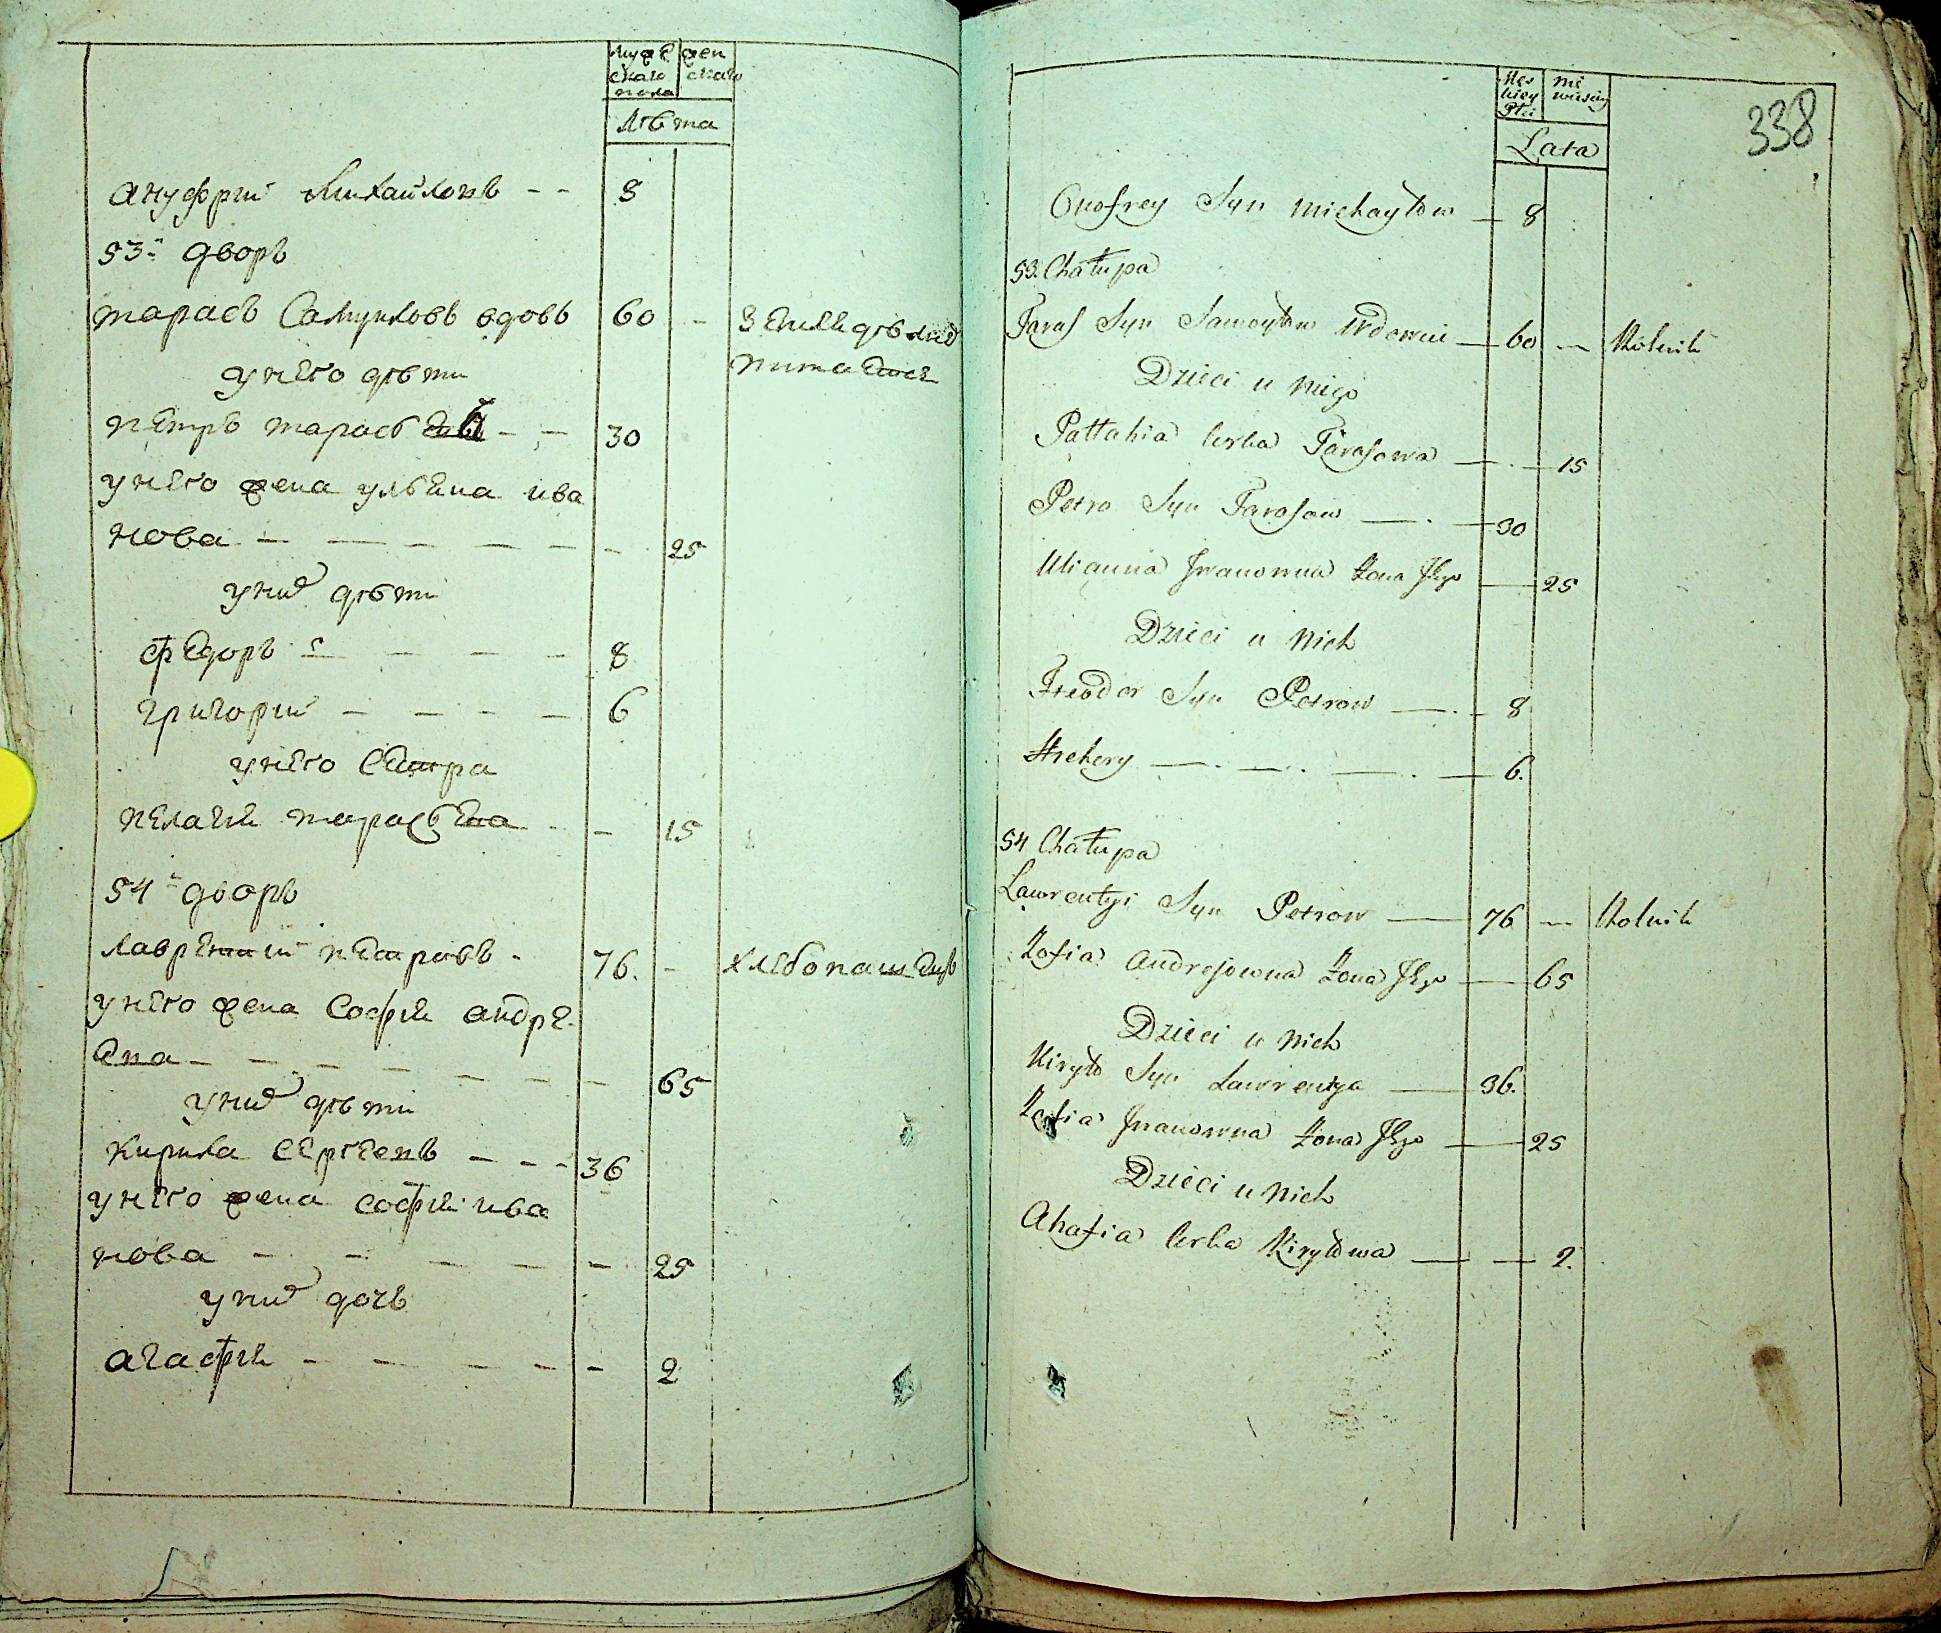 мужескаго пола
женскаго
Лѣта
ануфрій Михайловъ - - 8
53й дворъ
тарасъ Самуиловъ вдовъ 60 -
унего дѣти
петръ тарасовъ - - 30
унего жена ульяна ива
нова - - - - - - 25
унихъ дѣти
федоръ - - - - 8
григорій - - - - 6
унего сестра
пелагія - 15
54й дворъ
лаврентій петровъ - 76. - хлебопашецъ
унего жена Софія андре
ена - - - - - - - 65
унихъ дѣти
кирила Сергеевъ - - - 36
унего жена софія ива
нова - - - - - - 25
унихъ дочь
агафія - - - - - - 2
338
Męskiey Płci
Lata
Onofrey Syn Michayłow - 8
53. Chałupa
Taras Syn Samoyłow Wdowiec - 60 - Rolnik
Dzieci u niego
Pałtahia Corka Tarasowa - - 15
Petro Syn Tarasow - - 30
Ulianna Iwanowna Żona Jego - 25
Dzieci u nich
Fteodor Syn Petrow - - 8
Hrehory - - - - 6.
54 Chałupa
Lawrentyi Syn Petrow - 76 - Rolnik
Zofia Andrejowna Żona Jego - 65
Dzieci u nich
Kiryło Syn Lawrentya - 36.
Zofia Iwanowna Żona Jego - 25
Dzieci u nich
Ahafia Corka Kiryłowa - - 2.